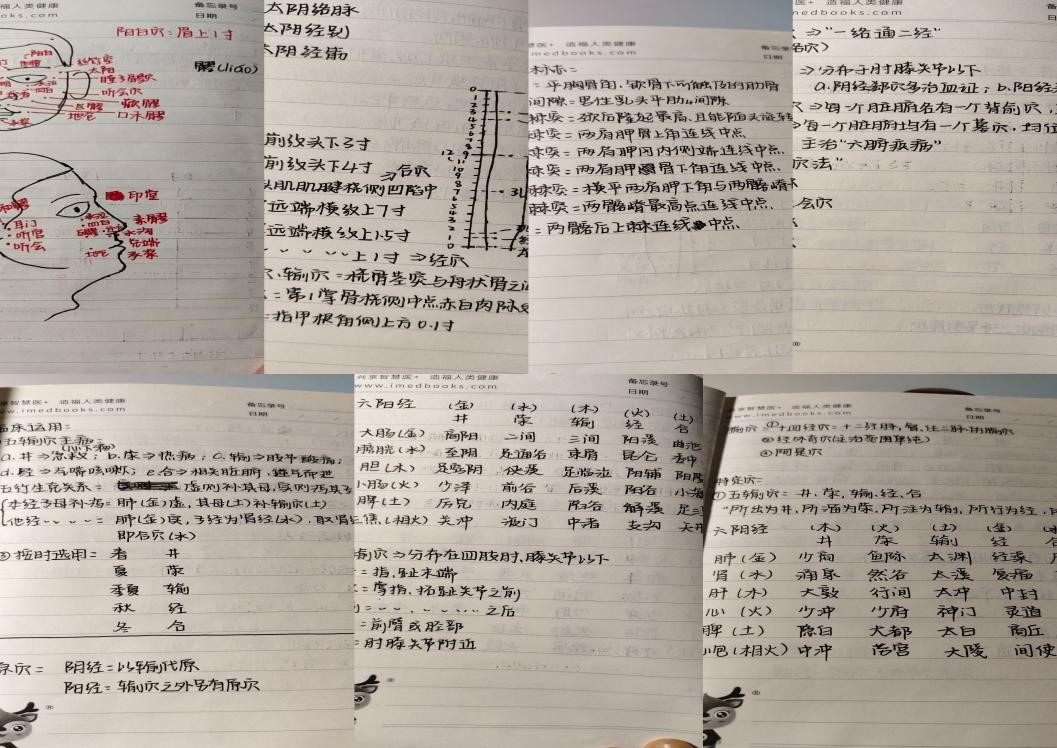 造福人类健康
备忘录号
日期
阳白穴:眉上1寸
髎(liáo)
太阳
听会穴
口禾髎
地仓
印堂
素髎
水沟
兑端
承浆
耳门
听宫
听会
地仓
太阴络脉
太阴经别
太阴经筋
前纹头下3寸
前纹头下4寸
合穴
肱肌肌腱桡侧凹陷中
远端横纹上7寸
远端横纹上1.5寸
上1寸⇒经穴
、输穴=桡骨茎突与舟状骨之间
=第1掌骨桡侧中点赤白肉际处
=指甲根角侧上方0.1寸
慧医+ 造福人类健康
备忘
日期
标志:
=平胸骨角,锁骨下可触及的肋骨
间隙=男性乳头平第4间隙
棘突=颈后隆起最高,且能随头旋转
棘突=两肩胛冈内侧端连线中点
棘突=两肩胛骨下角连线中点
棘突=横平两肩胛下角与两髂嵴
棘突=两髂嵴最高点连线中点
=两髂后上棘连线中点
医+ 造福人类健康
imedbooks.com
⇒"一络通二经"
⇒分布于肘膝关节以下
a.阴经郄穴多治血证;b.阳经
⇒每一个脏腑各有一个背俞穴,
⇒每一个脏腑均有一个募穴,均
主治"六腑疾病"
享智慧医+ 造福人类健康
www.imedbooks.com
备忘录号
日期
临床运用:
五输穴主病:
a.井⇒急救;b.荥⇒热病;c.输⇒肢节酸痛;
d.经⇒与喘咳咽喉;e.合⇒相关脏腑
五行生克关系=虚则补其母,实则泻其子
本经子母补泻=肺(金)虚,其母(土)补输穴(土)
他经〃〃〃〃=肺(金)实,子经为肾经(水),取肾
即合穴(水)
③按时选用=春 井
夏 荥
季夏 输
秋 经
冬 合
原穴=阴经=以输代原
阳经=输穴之外另有原穴
共享智慧医+ 造福人类健康
www.imedbooks.com
备忘录号
日期
六阳经 (金) (水) (木) (火) (土)
井 荥 输 经 合
大肠(金) 商阳 二间 三间 阳溪 曲池
膀胱(水) 至阴 足通谷 束骨 昆仑 委中
胆(木) 足窍阴 侠溪 足临泣 阳辅 阳陵
小肠(火) 少泽 前谷 后溪 阳谷 小海
脾(土) 厉兑 内庭 陷谷 解溪 足三
三焦(相火) 关冲 液门 中渚 支沟 天井
输穴⇒分布在四肢肘、膝关节以下
=指、趾末端
=掌指、跖趾关节之前
=〃〃〃〃〃〃之后
=前臂或胫部
=肘膝关节附近
享智慧医+ 造福人类健康
www.imedbooks.com
备忘录号
日期
腧穴⇒①十四经穴=十二经脉,督、任二脉所属腧穴
②经外奇穴(主治范围单纯)
③阿是穴
特定穴:
①五输穴=井、荥、输、经、合
"所出为井,所溜为荥,所注为输,所行为经,所
六阴经 (木) (火) (土) (金) (水
井 荥 输 经 合
肺(金) 少商 鱼际 太渊 经渠
肾(水) 涌泉 然谷 太溪 复溜
肝(木) 大敦 行间 太冲 中封
心(火) 少冲 少府 神门 灵道
脾(土) 隐白 大都 太白 商丘
心包(相火) 中冲 劳宫 大陵 间使